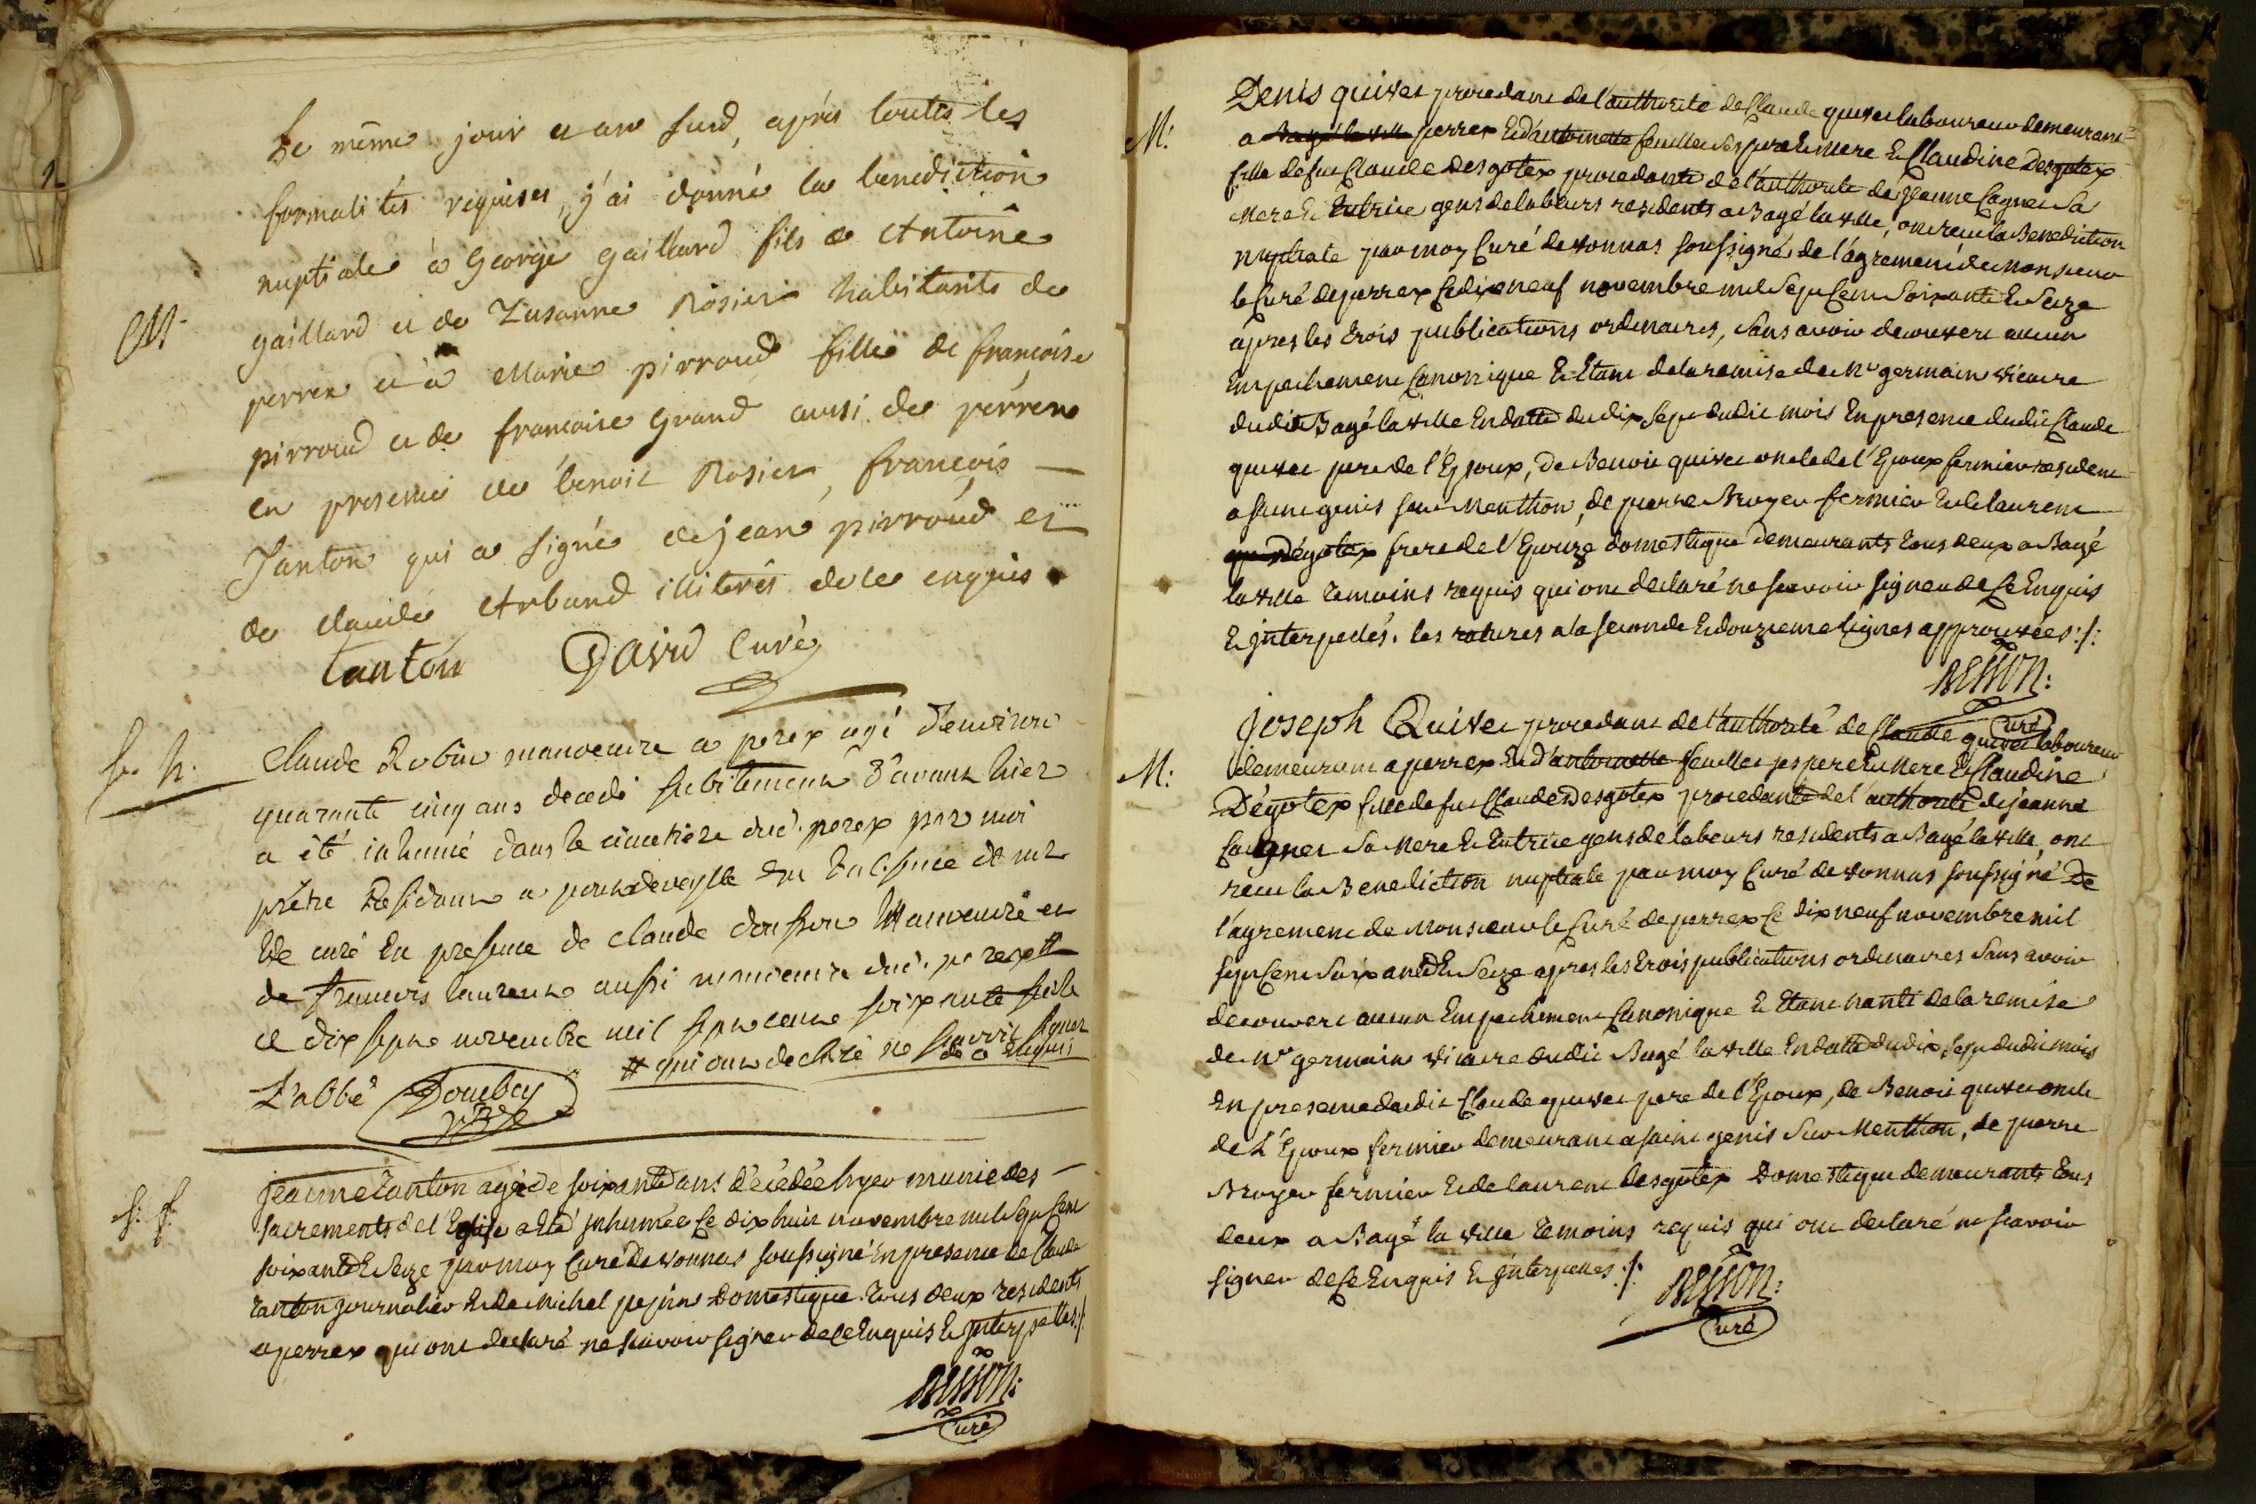 Le même jour et an susd, aprés toutes les
formalités requises, j'ai donné la benediction
nuptiale à George gaillard fils de Antoine
M.
gaillard et de Susanne Rosier habitants de
perrex et à Marie pirroud fille de françoise
pirroud et de francoise grand aussi de pérrex
en presence de benoit Rosier, françois
Tanton qui a signé de jean pirroud et
de claude Arband illiterés de ce enquis
Tanton David Curé
S. h.
Claude Robin manoeuvre a perex agé d'environ
quarante cinq ans decedé subitement d'avant hier
a été inhumé dans le cimetière dud. perex par moi
prétre Residant a pont de veyle en l'absence de mr
le curé En presence de claude Manoeuvre et
de francois laurent aussi manoeuvre dud. perex #
ce dix sept novembre mil sept cent soixante seize
# qui ont declaré ne scavoir signer
de ce enquis
L'abbé Doucbey
ptre
S: f:
jeanne Tanton agée de soixante ans décédée hyer munie des
sacrements de l'Eglise a Eté inhumée Ce dix huit novembre mil Sept Cent
soixante Et Seize par moy Curé de vonnas soussigné En presence de Claude
Tanton journalier Et de Michel pejin Domestique tous deux residents
a perrex qui ont declaré ne scavoir signer de Ce Enquis Et Interpellés :/:
Besson:
Curé
M:
Denis quivet procedant de l'authorité de Claude quivet laboureur demeurant
a Bagé la ville perrex Et d'antoinette feuillet Ses pere Et Mere Et Claudine Desgotex
fille de fut Claude desgotex procedante de l'authorité de jeanne Cagnet Sa
Mere Et tutrice gens de labeurs residents a Bagé la ville, ont recu la Benediction
nuptiale par moy Curé de vonnas soussigné de l'agrement de Monsieur
le Curé de perrex Ce dix neuf novembre mil Sept Cent Soixante Et Seize
apres les trois publications ordinaires, sans avoir decouvert aucun
Empechement Canonique Et Etant de la remise de Mr germain vicaire
dudit Bagé la ville En datte du dix Sept dudit mois En presence dudit Claude
quivet pere de l'Epoux, de Benoit quivet oncle de l'Epoux fermier resident
a saint genis sur Menthon, de pierre Broyer fermier Et de laurent
Dégotex frere de l'Epouze domestique demeurants tous deux a Bagé
la ville temoins requis qui ont declaré ne scavoir signer de Ce Enquis
Et Interpellés. les ratures a la seconde Et douzieme lignes approuvées :/:
Besson:
Curé
M:
joseph Quivet procedant de l'authorité de Claude quivet laboureur
demeurant a perrex Et d'antoinette feuillet ses pere Et Mere Et Claudine
Dégotex fille de fut Claude Desgotex procedante de l'authorité de jeanne
Cagnet Sa Mere Et tutrice gens de labeurs residents a Bagé la ville, ont
recu la Benediction nuptiale par moy Curé de vonnas soussigné De
l'agrement de Monsieur le Curé de perrex Ce dix neuf novembre mil
sept Cent Soixante Et Seize apres les trois publications ordinaires Sans avoir
decouvert aucun Empechement Canonique Et Etant nanti de la remise
de Mr germain vicaire dudit Bagé la ville En datte du dix Sept dudit mois
En presence dudit Claude quivet pere de l'Epoux, de Benoit quivet oncle
de L'Epoux fermier demeurant a saint genis sur Menthon, de pierre
Broyer fermier Et de laurent desgotex Domestique demeurants tous
deux a Bagé la ville temoins requis qui ont declaré ne scavoir
signer de Ce Enquis Et Interpellés :/:
Besson:
Curé